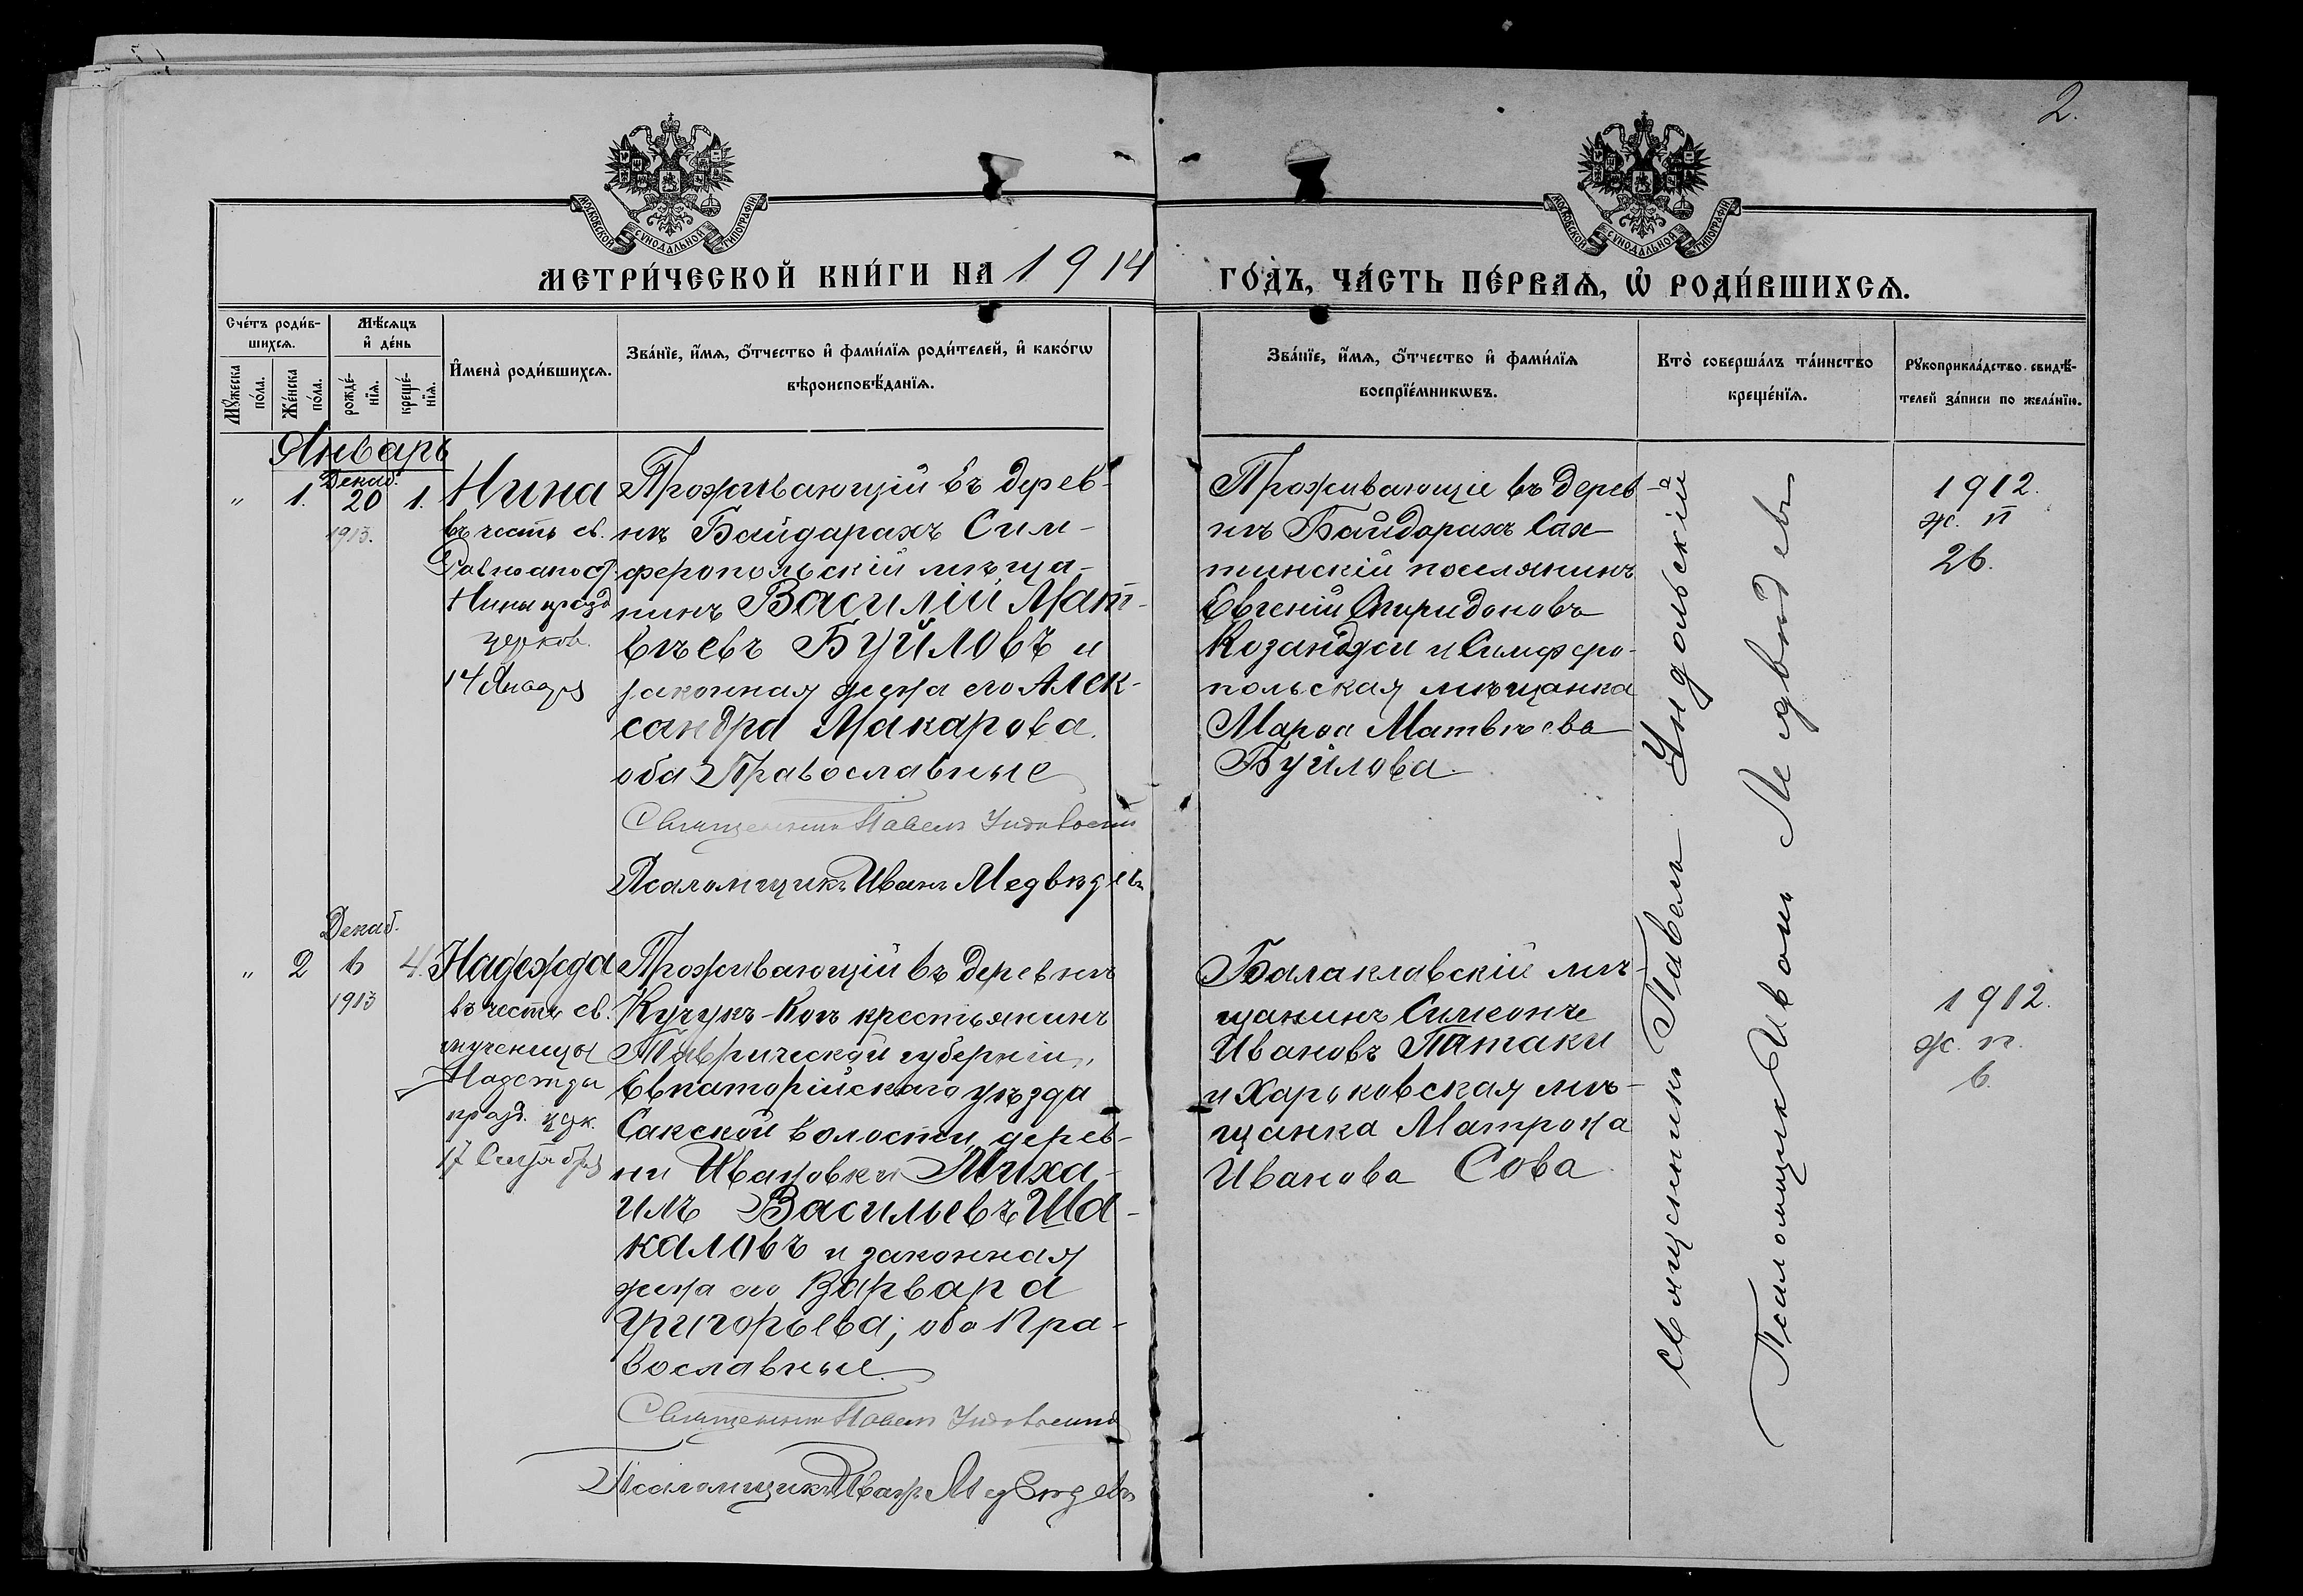 2.
МОСКОВСКОЙ СУНОДАЛЬНОЙ ТИПОГРАФІИ
МОСКОВСКОЙ СУНОДАЛЬНОЙ ТИПОГРАФІИ
МЕТРИ́ЧЕСКОЙ КНИ́ГИ НА 1914
ГО́ДЪ, ЧА́СТЬ ПЕ́РВАѦ, Ѡ҆ РОДИ́ВШИХСѦ.
Сче́тъ роди́в-
шихсѧ.
Мѣ́сѧцъ
и҆ де́нь
Мꙋ́жеска
по́ла.
Же́нска
по́ла.
рожде́-
нїѧ.
креще́-
нїѧ.
И҆мена̀ роди́вшихсѧ.
Зва́нїе, и҆́мѧ, ѻ҆́тчество и҆ фами́лїѧ роди́телей, и҆ како́гѡ
вѣроисповѣ́данїѧ.
Зва́нїе, и҆́мѧ, ѻ҆́тчество и҆ фами́лїѧ
воспрїе́мникѡвъ.
Кто̀ соверша́лъ та́инство
креще́нїѧ.
Рꙋкоприкла́дство свидѣ́-
телей за́писи по жела́нїю.
Январь
Декаб.
" 1. 20 1.
1913.
Нина
въ честь св.
Равноапост.
Нины празд
церков.
14 Января
Проживающій въ дерев-
нѣ Байдарахъ Сим-
феропольскій мѣща-
нинъ Василій Мат-
вѣевъ Буйловъ и
законная жена его Алек-
сандра Макарова.
оба Православные
Священникъ Павелъ Ундольскій
Псаломщикъ Иванъ Медвѣдевъ
Проживающіе въ дерев-
нѣ Байдарахъ
поселянинъ
Евгеній Спиридоновъ
и Симферо-
польская мѣщанка
Марѳа Матвѣева
Буйлова.
1912.
ж. п
26.
Священникъ Павелъ Ундольскій
Псаломщикъ Иванъ Медвѣдевъ
Декаб.
" 2 6 4.
1913
Надежда
въ честь св.
мученицы
Надежды
празд. црк.
17 Сентября
Проживающій въ деревнѣ
Кучукъ-Коѣ крестьянинъ
Таврической губерніи,
Евпаторійскаго уѣзда
Сакской волости, дерев-
ни Ивановки Миха-
илъ Васильевъ Ша-
каловъ и законная
жена его Варвара
Григорьева; оба Пра-
вославные.
Священникъ Павелъ Ундольскій
Псаломщикъ Иванъ Медвѣдевъ
Балаклавскій мѣ-
щанинъ Симеонъ
Ивановъ
и Харьковская мѣ-
щанка Матрона
Иванова Сова
1912.
ж. п.
6.